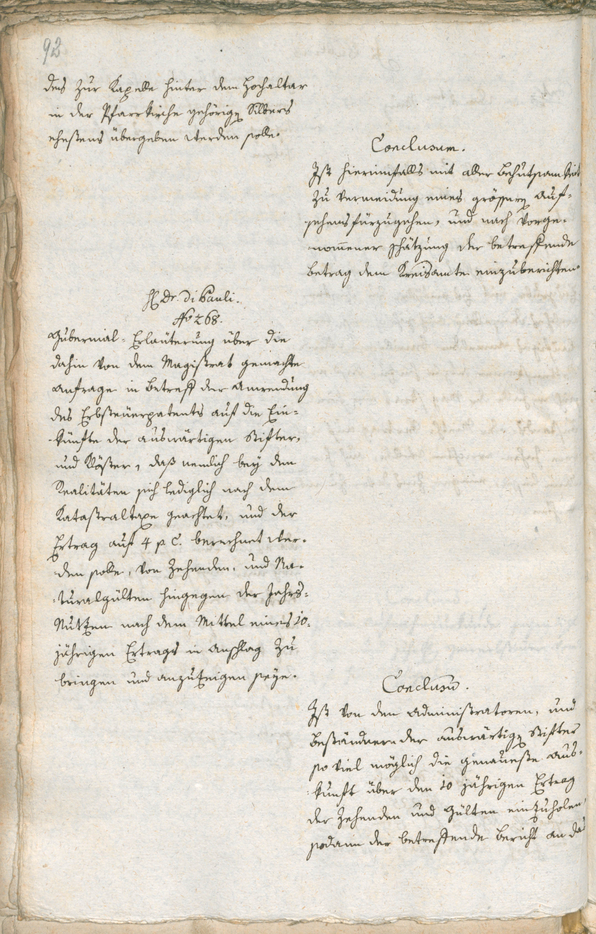 92
des zur Kapelle hinter dem Hochaltar
in der Pfarrkirche gehörigen Silbers
ehestens übergeben werden solle.
Conclusum.
Ist hierinfalls mit aller Behutsamkeit
zu Vermeidung eines grössern Auf-
sehens fürzugehen, und nach vorge-
nommener Schätzung der betreffende
Betrag dem Kreisamte einzuberichten.
H. Dr. di Pauli.
No 268.
Gubernial-Erläuterung über die
dahin von dem Magistrat gemachte
Anfrage in Betreff der Anwendung
des Erbsteuerpatents auf die Ein-
künfte der auswärtigen Stifter,
und Klöster, daß nemlich bey den
Realitäten sich lediglich nach dem
Katastraltaxe geachtet, und der
Ertrag auf 4 p C. berechnet wer-
den solle, von Zehenden, und Na-
turalgülten hingegen der Jahrs-
Nutzen nach dem Mittel eines 10.
jährigen Ertrags in Anschlag zu
bringen und anzuzeigen seye.
Conclusum.
Ist von den Administratoren, und
Beständnern der auswärtigen Stifter
so viel möglich die genaueste Aus-
kunft über den 10 jährigen Ertrag
der Zehenden und Gülten einzuholen,
sodann der betreffende Bericht an das